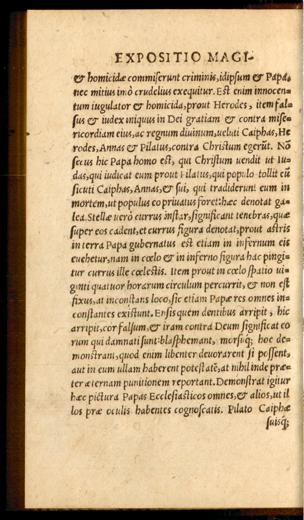 EXPOSITIO MAGI-
& homicidæ commiserunt criminis, idipsum & Papa,
nec mitius imò crudelius exequitur. Est enim innocen-
tum iugulator & homicida, prout Herodes, item fal-
sus & iudex iniquus in Dei gratiam & contra mise-
ricordiam eius, ac regnum diuinum, ueluti Caiphas, He
rodes, Annas & Pilatus, contra Christum egerũt. Nõ
secus hic Papa homo est, qui Christum uendit ut Iu-
das, qui iudicat eum prout Pilatus, qui populo tollit eũ
sicuti Caiphas, Annas, & sui, qui tradiderunt eum in
mortem, ut populus eo priuatus foret: hæc denotat ga-
lea. Stellæ uerò currus instar, significant tenebras, quæ
super eos cadent, et currus figura denotat, prout astris
in terra Papa gubernatus est etiam in infernum eis
euehetur, nam in cœlo & in inferno figura hac pingi-
tur currus ille cœlestis. Item prout in cœlo spatio ui-
ginti quatuor horarum circulum percurrit, & non est
fixus, at inconstans loco, sic etiam Papæ res omnes in-
constantes existunt. Ensis quem dentibus arripit, hic
arripit, cor falsum, & iram contra Deum significat eo
rum qui damnati sunt: blasphemant, morsuq́; hoc de-
monstrant, quod enim libenter deuorarent si possent,
aut in eum ullam haberent potestatẽ, at nihil inde præ-
ter æternam punitionem reportant. Demonstrat igitur
hæc pictura Papas Ecclesiasticos omnes, & alios, ut il
los præ oculis habentes cognoscatis. Pilato Caiphæ
suisq́;